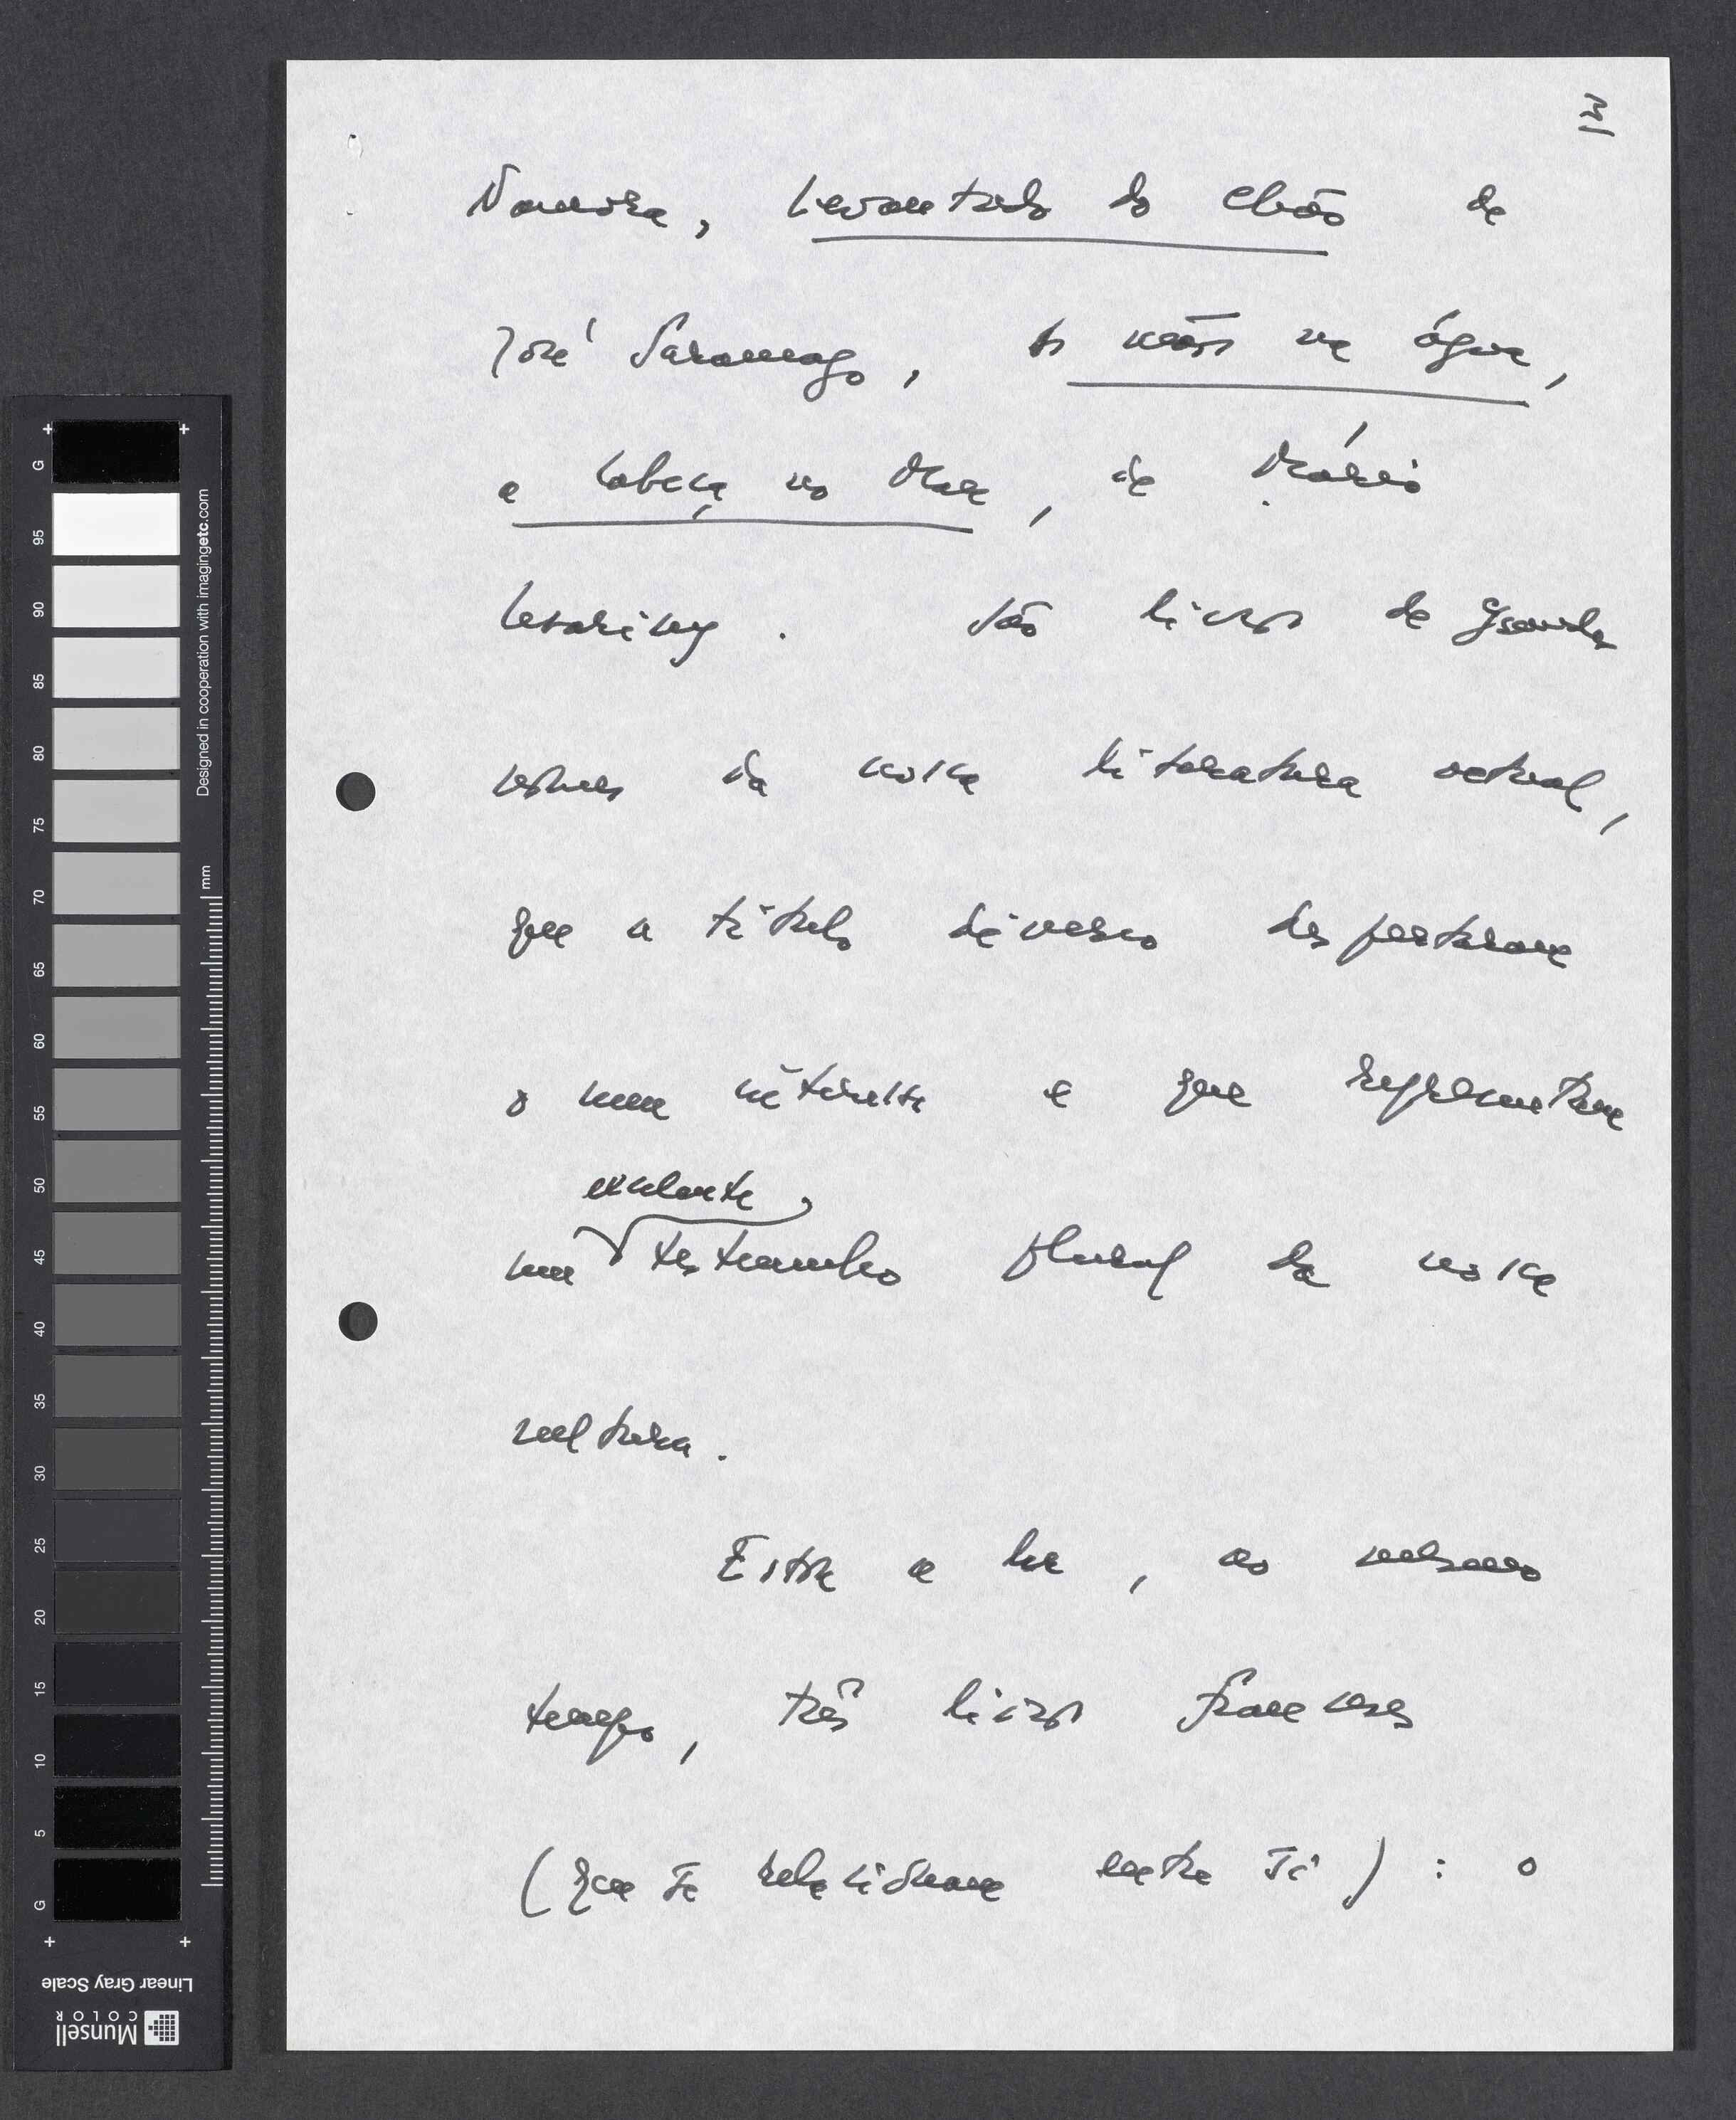 3
Namora, Levantado do Chão de
José Saramago, As mãos na água,
a Cabeça no Mar, de Mário
Cesariny. São livros de grandes
nomes da nossa literatura actual,
que a título diverso despertaram
o meu interesse e que representam
excelente
um testemunho plural da nossa
cultura.
Estou a ler, ao mesmo
tempo, três livros franceses
(que se relacionam entre si) : o
G
95
90
85
80
75
70
65
60
55
50
45
40
35
30
25
20
15
10
5
G
Designed in cooperation with imagingetc.com
mm
Linear Gray Scale
Munsell
COLOR